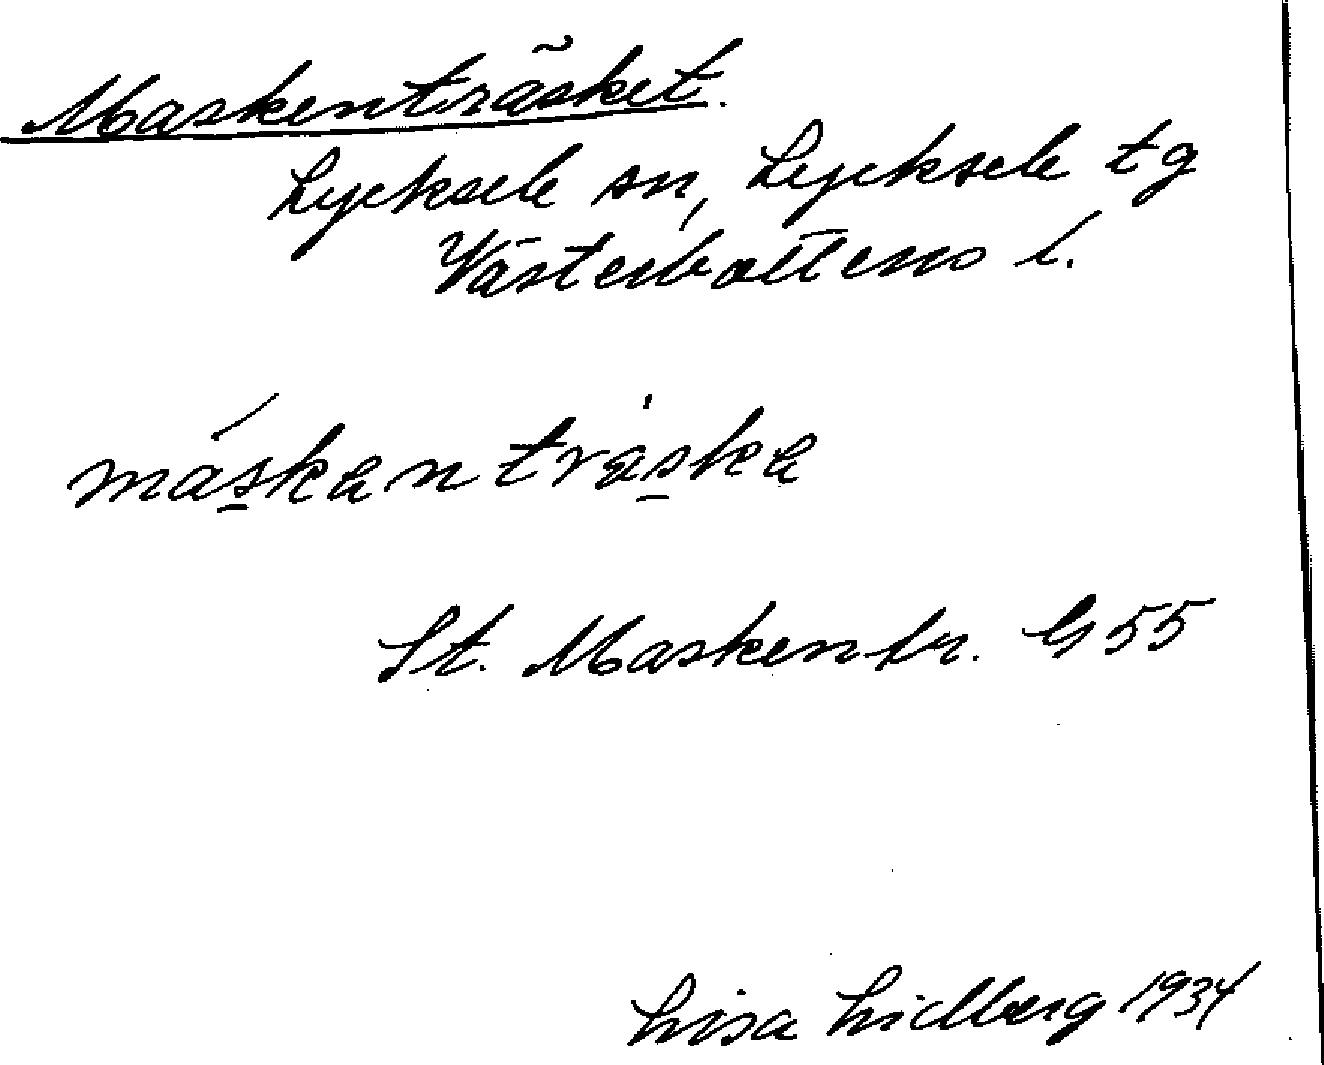 Maskenträsket.
Lycksele sn, Lycksele tg
Västerbottens l.
máskantråska
St. Maskentr. G 55
Lisa Lidberg 1934